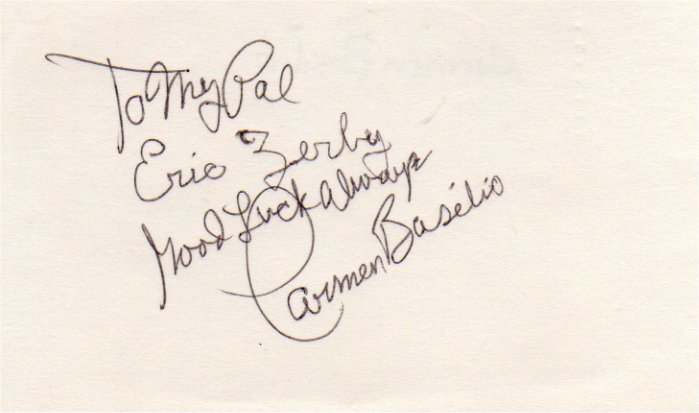 To My Pal
Eric Zerby
Good Luck Always
Carmen Basilio